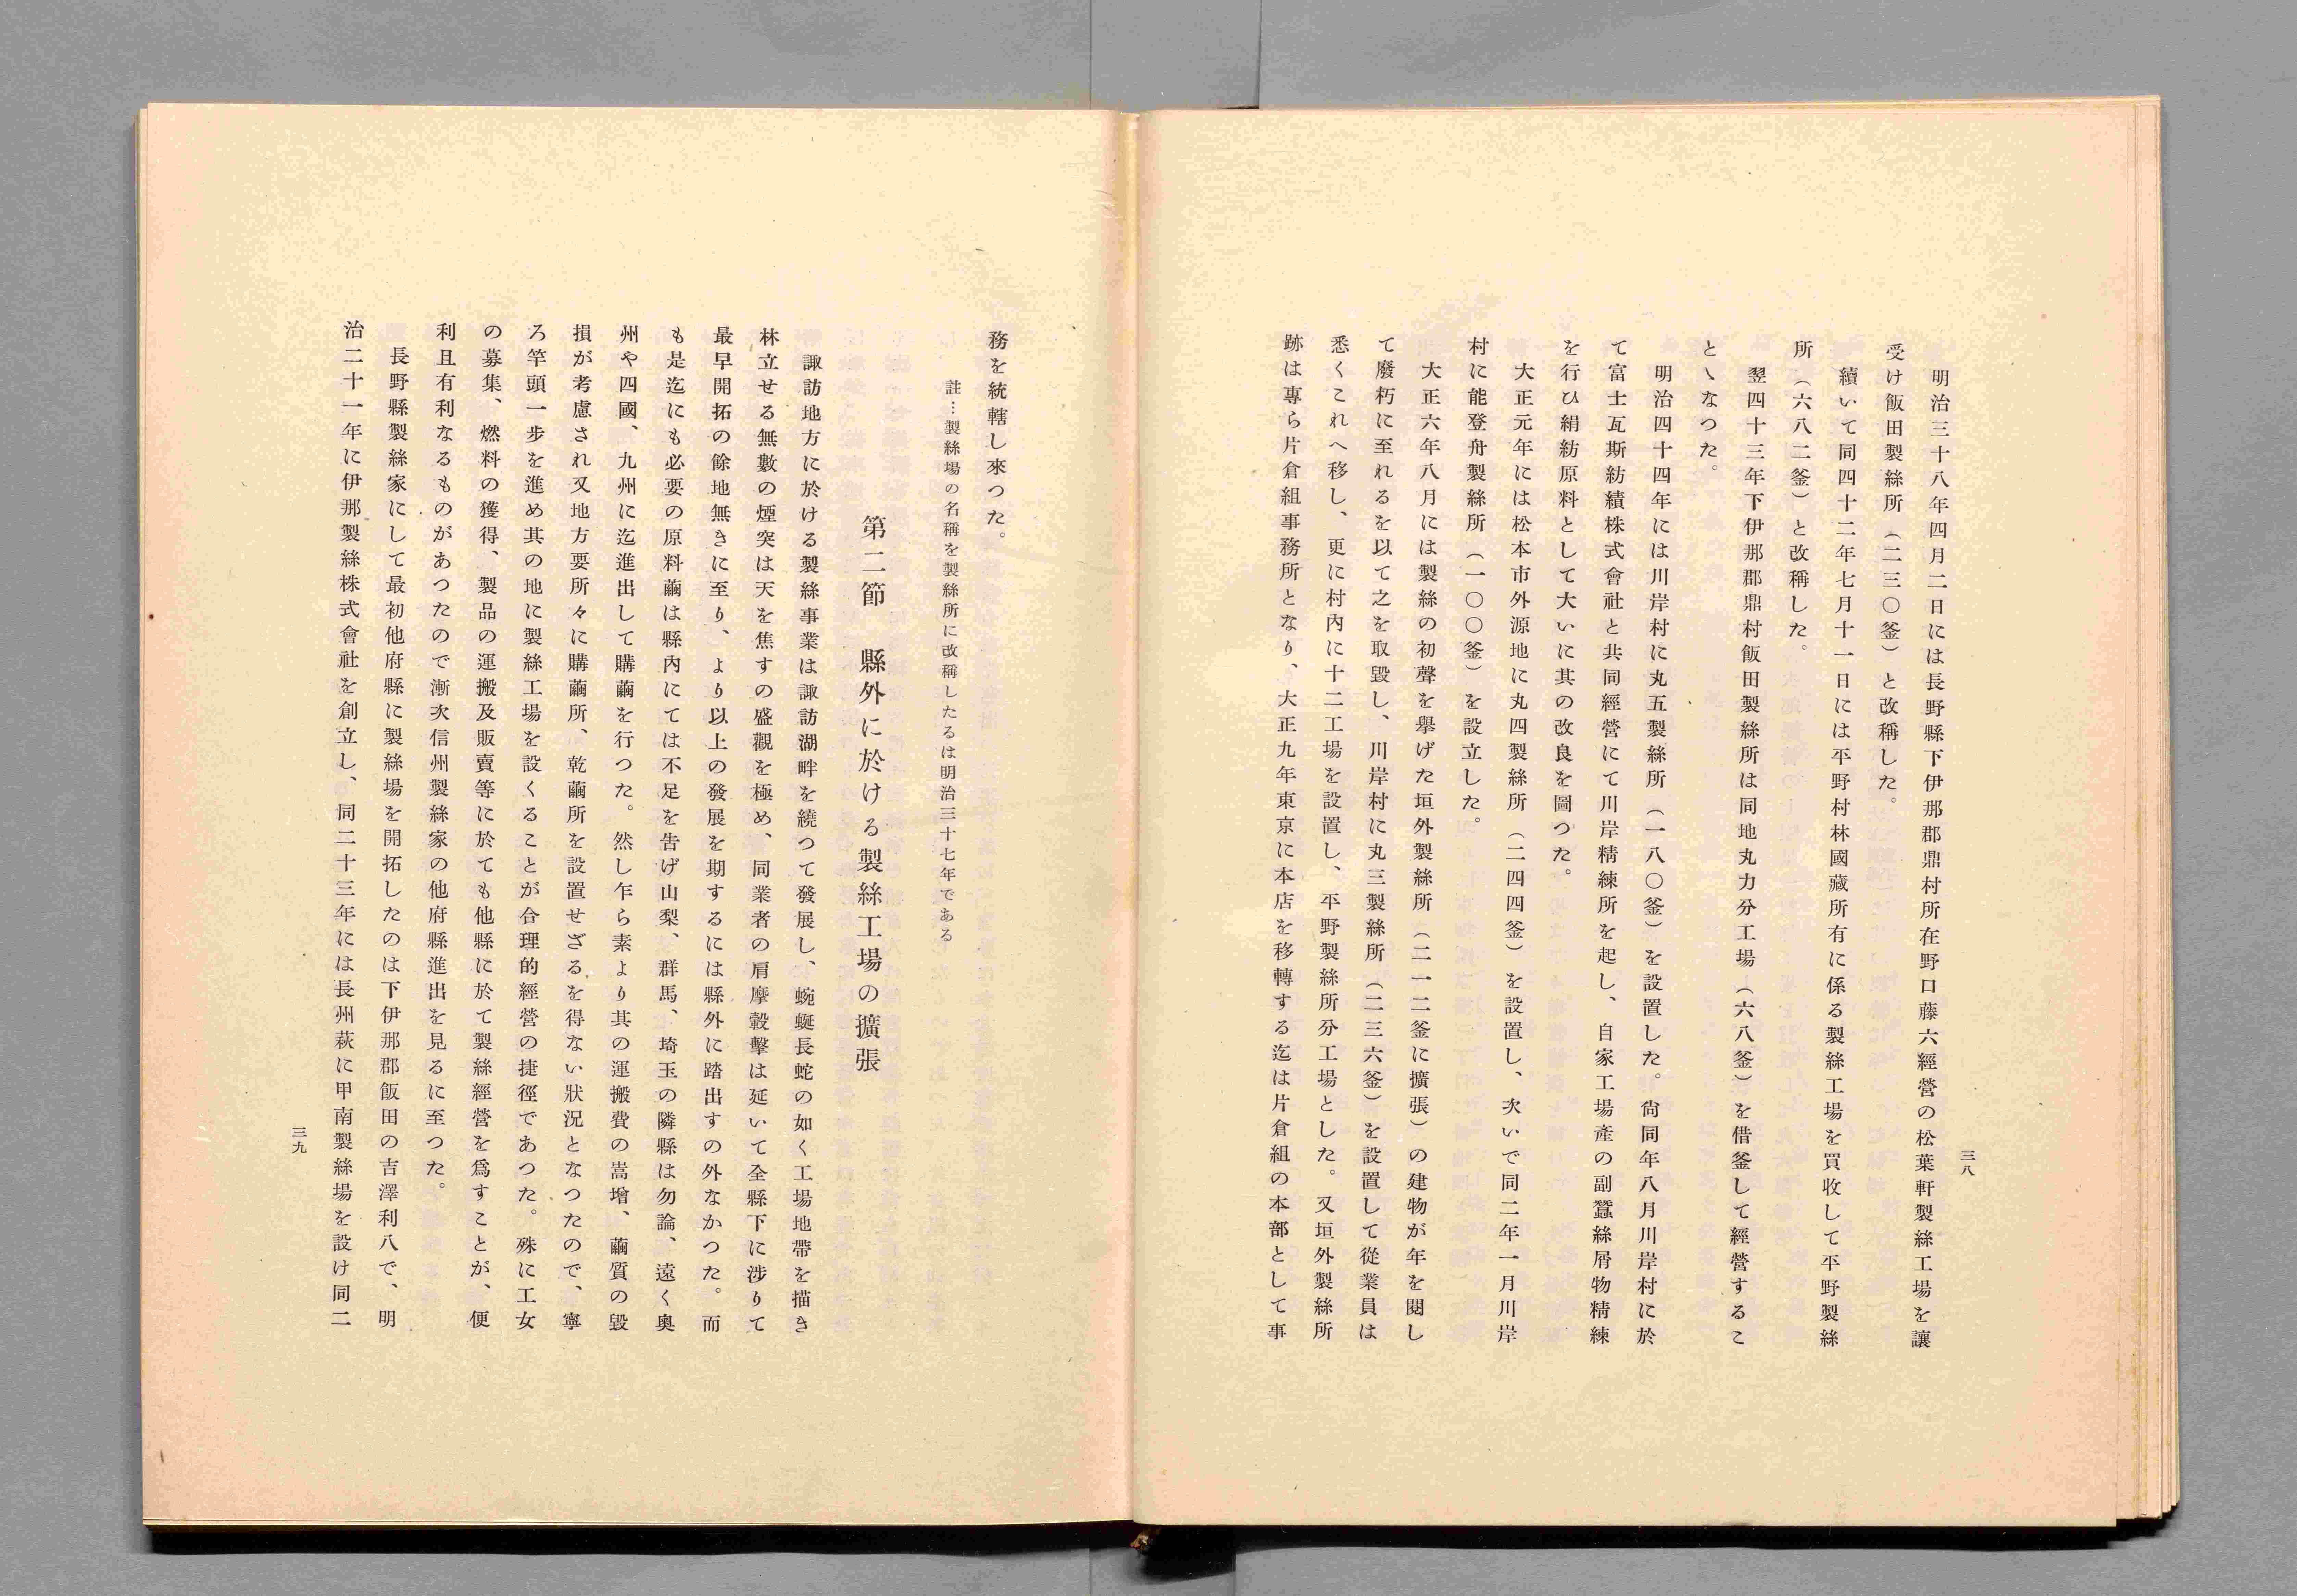 三八
明治三十八年四月二日には長野縣下伊那郡鼎村所在野口藤六經營の松葉軒製絲工場を讓
受け飯田製絲所（二三〇釜）と改稱した。
續いて同四十二年七月十一日には平野村林國藏所有に係る製絲工場を買收して平野製絲
所（六八二釜）と改稱した。
翌四十三年下伊那郡鼎村飯田製絲所は同地丸力分工場（六八釜）を借釜して經營するこ
とゝなつた。
明治四十四年には川岸村に丸五製絲所（一八〇釜）を設置した。尙同年八月川岸村に於
て富士瓦斯紡績株式會社と共同經營にて川岸精練所を起し、自家工場產の副蠶絲屑物精練
を行ひ絹紡原料として大いに其の改良を圖つた。
大正元年には松本市外源地に丸四製絲所（二四四釜）を設置し、次いで同二年一月川岸
村に能登舟製絲所（一〇〇釜）を設立した。
大正六年八月には製絲の初聲を擧げた垣外製絲所（二一二釜に擴張）の建物が年を閱し
て廢朽に至れるを以て之を取毀し、川岸村に丸三製絲所（二三六釜）を設置して從業員は
悉くこれへ移し、更に村內に十二工場を設置し、平野製絲所分工場とした。又垣外製絲所
跡は專ら片倉組事務所となり、大正九年東京に本店を移轉する迄は片倉組の本部として事
務を統轄し來つた。
註…製絲場の名稱を製絲所に改稱したるは明治三十七年である
第二節　縣外に於ける製絲工場の擴張
諏訪地方に於ける製絲事業は諏訪湖畔を繞つて發展し、蜿蜒長蛇の如く工場地帶を描き
林立せる無數の煙突は天を焦すの盛觀を極め、同業者の肩摩轂擊は延いて全縣下に涉りて
最早開拓の餘地無きに至り、より以上の發展を期するには縣外に踏出すの外なかつた。而
も是迄にも必要の原料繭は縣內にては不足を告げ山梨、群馬、埼玉の隣縣は勿論、遠く奧
州や四國、九州に迄進出して購繭を行つた。然し乍ら素より其の運搬費の嵩增、繭質の毀
損が考慮され又地方要所々に購繭所、乾繭所を設置せざるを得ない狀況となつたので、寧
ろ竿頭一步を進め其の地に製絲工場を設くることが合理的經營の捷徑であつた。殊に工女
の募集、燃料の獲得、製品の運搬及販賣等に於ても他縣に於て製絲經營を爲すことが、便
利且有利なるものがあつたので漸次信州製絲家の他府縣進出を見るに至つた。
長野縣製絲家にして最初他府縣に製絲場を開拓したのは下伊那郡飯田の吉澤利八で、明
治二十一年に伊那製絲株式會社を創立し、同二十三年には長州萩に甲南製絲場を設け同二
三九